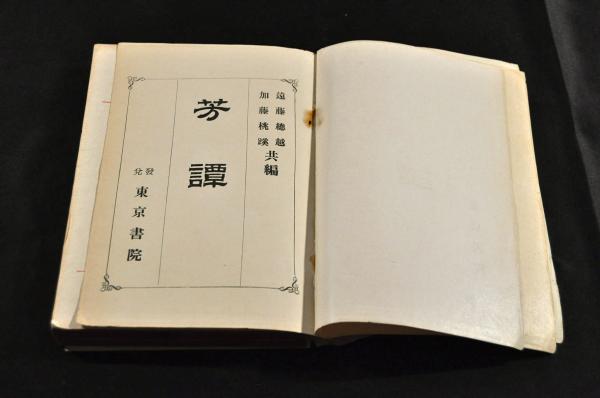 遠藤穗越
加藤桃蹊
共編
芳譚
發兌 東京書院